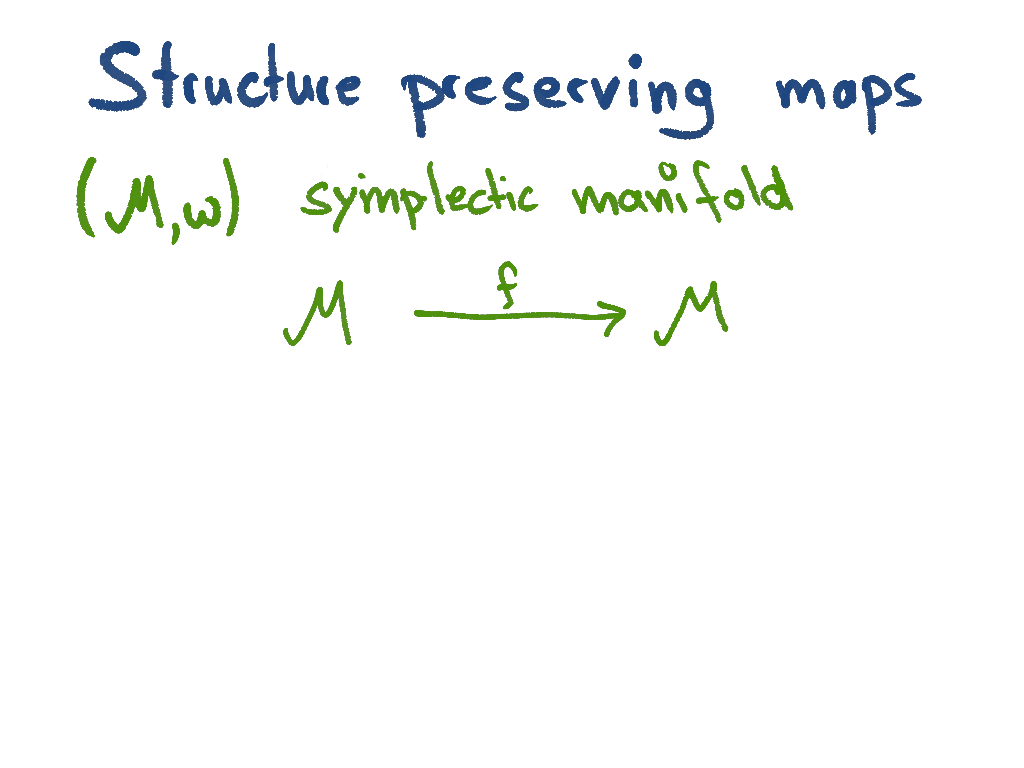 Structure preserving maps
(M, ω) symplectic manifold
f
M → M